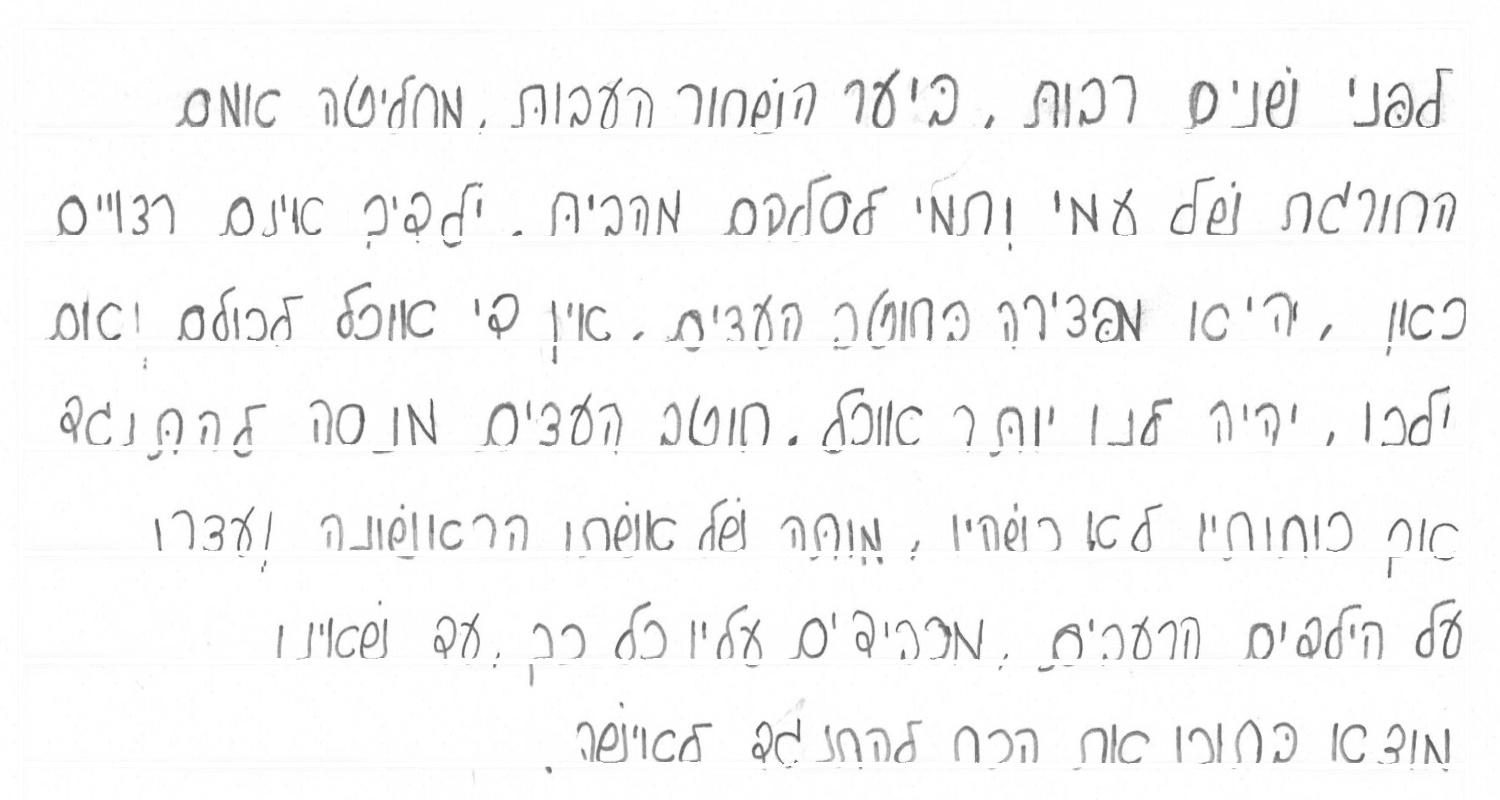 לפני שנים רבות, ביער השחור העבות, מחליטה אמם
החורגת של עמי ותמי לסלקם מהבית. ילדיך אינם רצויים
כאן, היא מפצירה בחוטב העצים, אין די אוכל לכולם ואם
ילכו, יהיה לנו יותר אוכל. חוטב העצים מנסה להתנגד
אך כוחותיו לא כשהיו, מותה של אשתו הראשונה ועצרו
על הילדים הרעבים, מכבידים עליו כל כך, עד שאינו
מוצא בתוכו את הכח להתנגד לאישה.